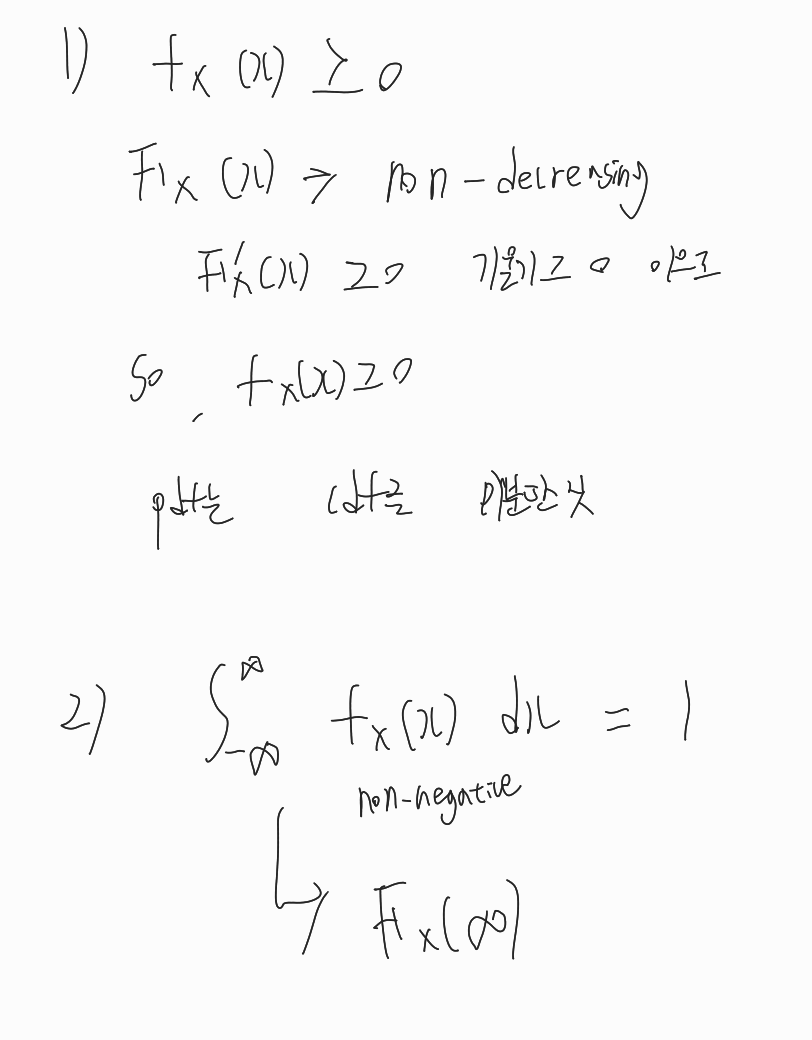 1) f_X(x) ≥ 0
F_X(x) → non-decreasing
F'_X(x) ≥ 0 기울기 ≥ 0 이므로
So, f_X(x) ≥ 0
pdf는 cdf를 미분한 것
2) ∫_{-∞}^{∞} f_X(x) dx = 1
non-negative
↳ F_X(∞)